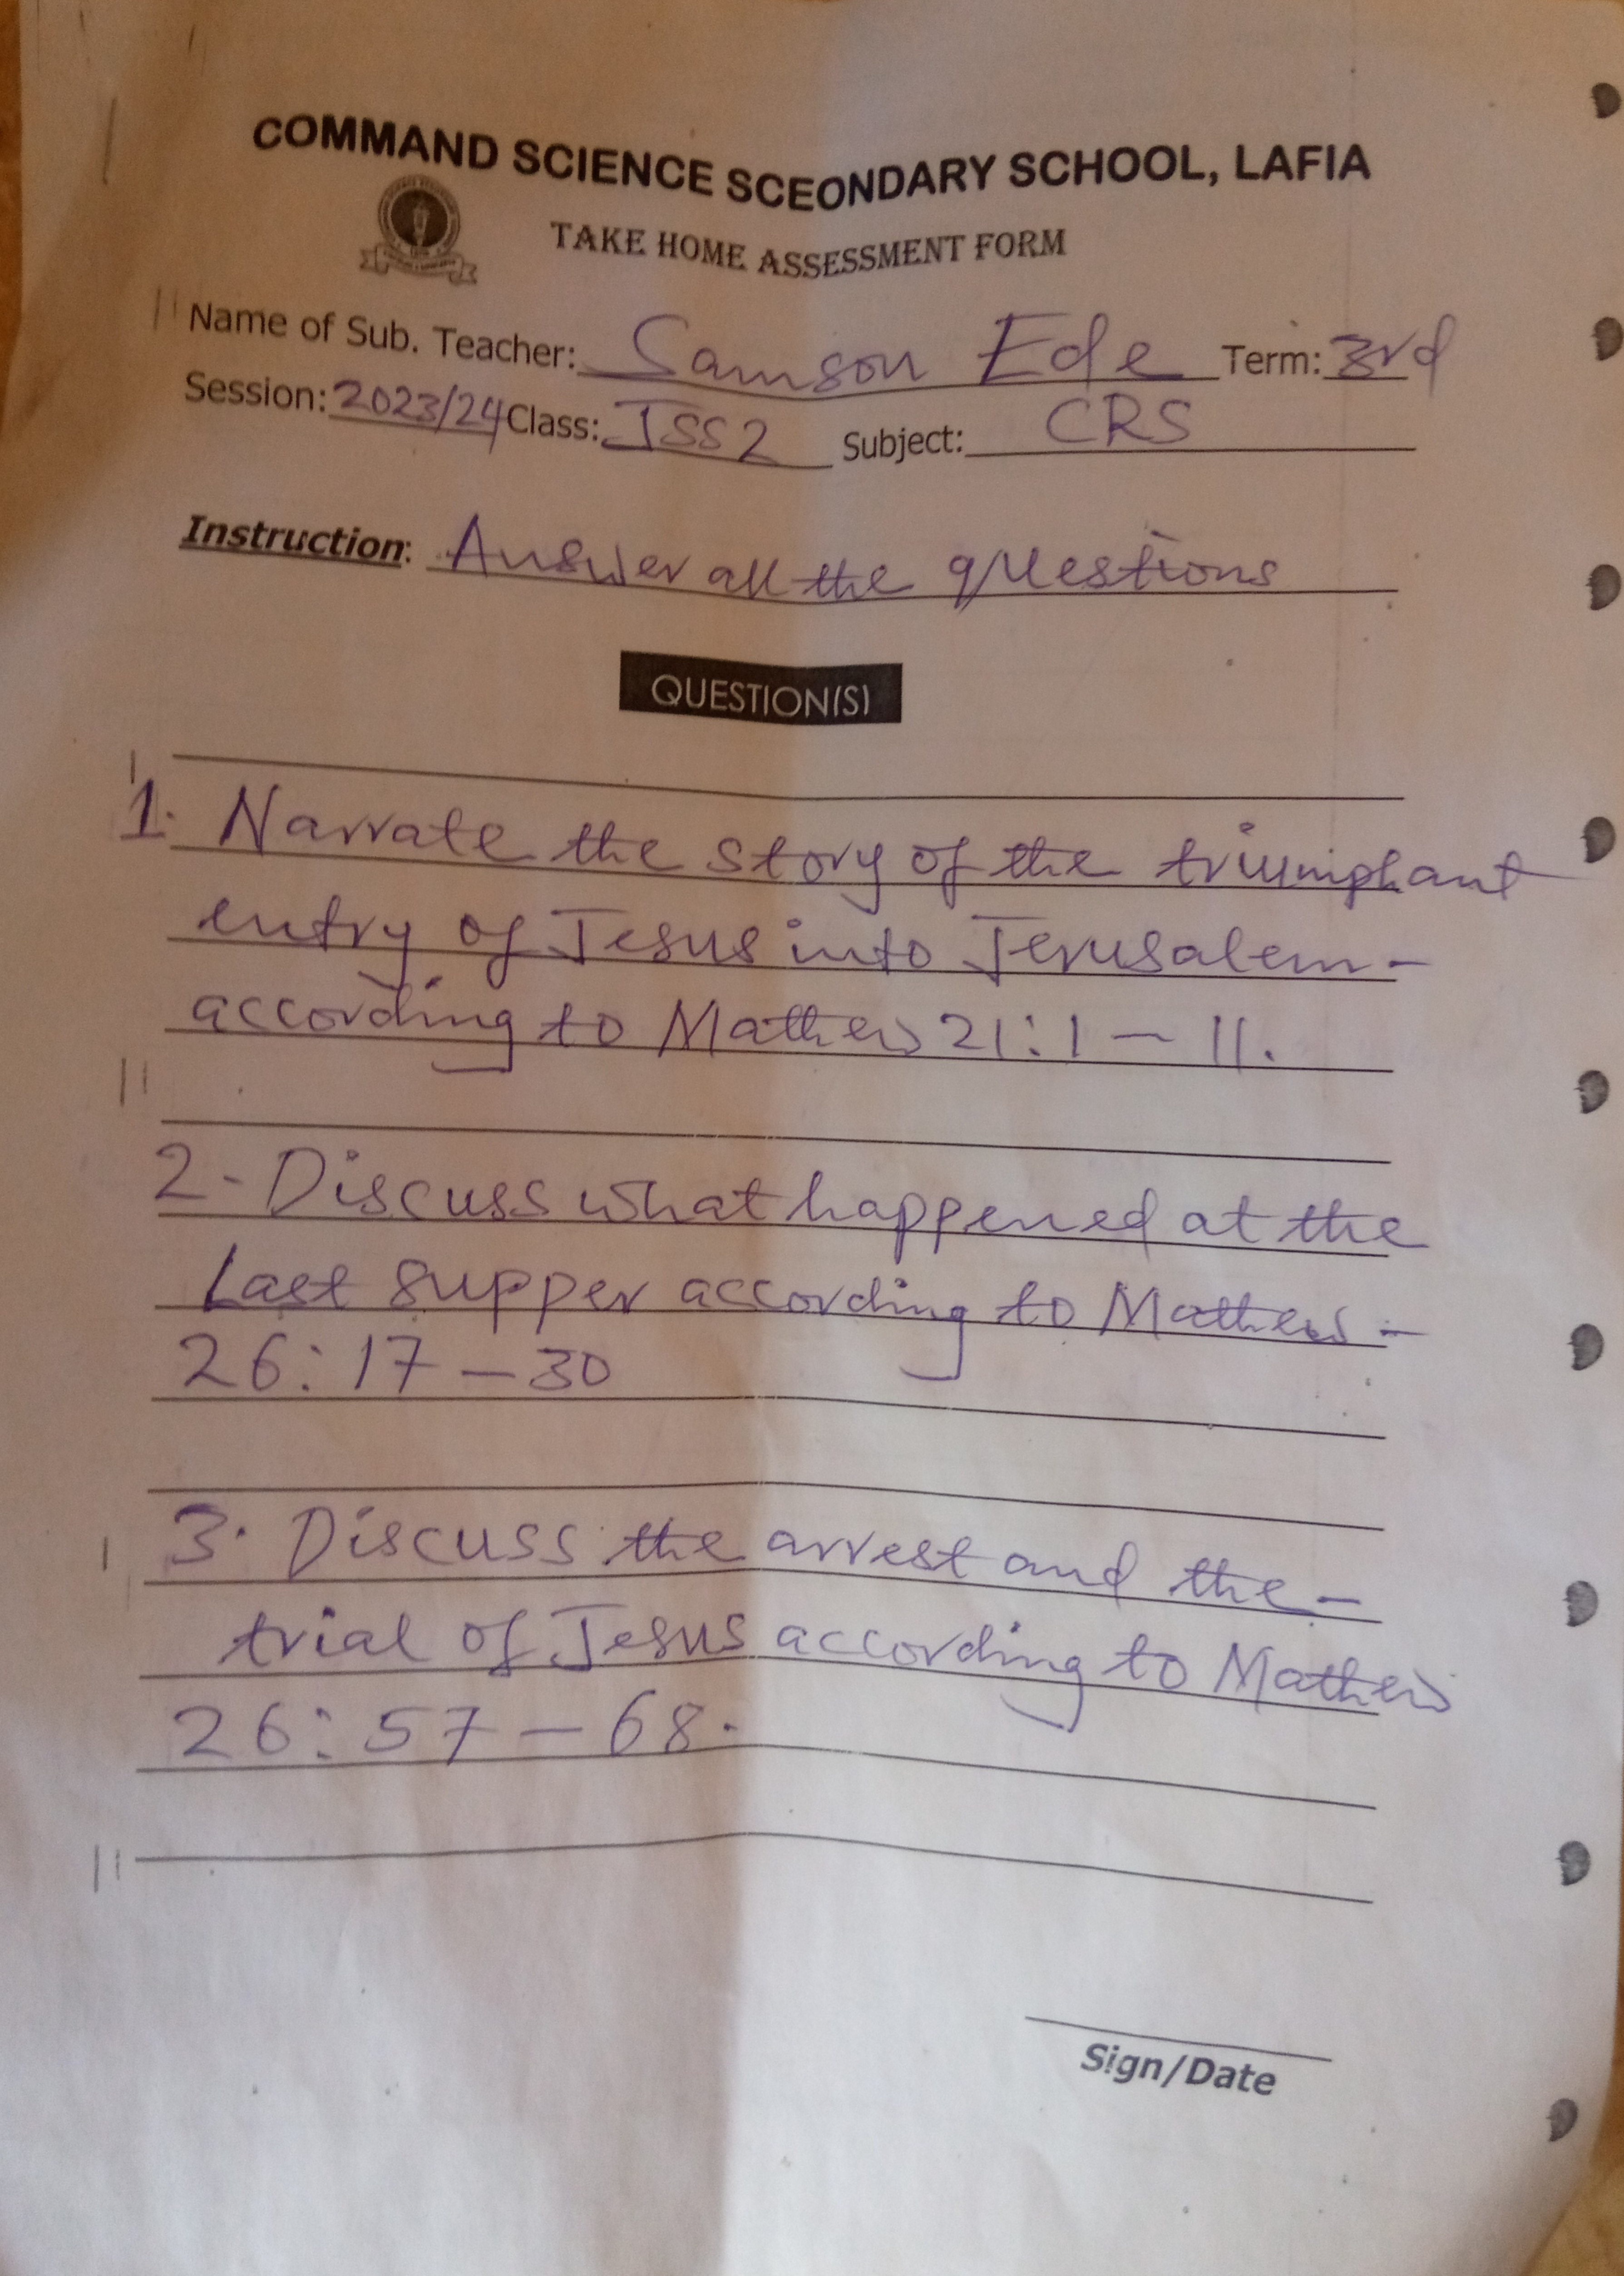 COMMAND SCIENCE SCEONDARY SCHOOL, LAFIA
TAKE HOME ASSESSMENT FORM
Name of Sub. Teacher: Samson Ede Term: 3rd
Session: 2023/24 Class: JSS2 Subject: CRS
Instruction: Answer all the questions
QUESTION(S)
1. Narrate the story of the triumphant
entry of Jesus into Jerusalem-
according to Mathew 21:1 - 11.
2- Discuss what happened at the
Last supper according to Mathew -
26: 17 - 30
3. Discuss the arrest and the-
trial of Jesus according to Mathew
26: 57 - 68.
Sign/Date